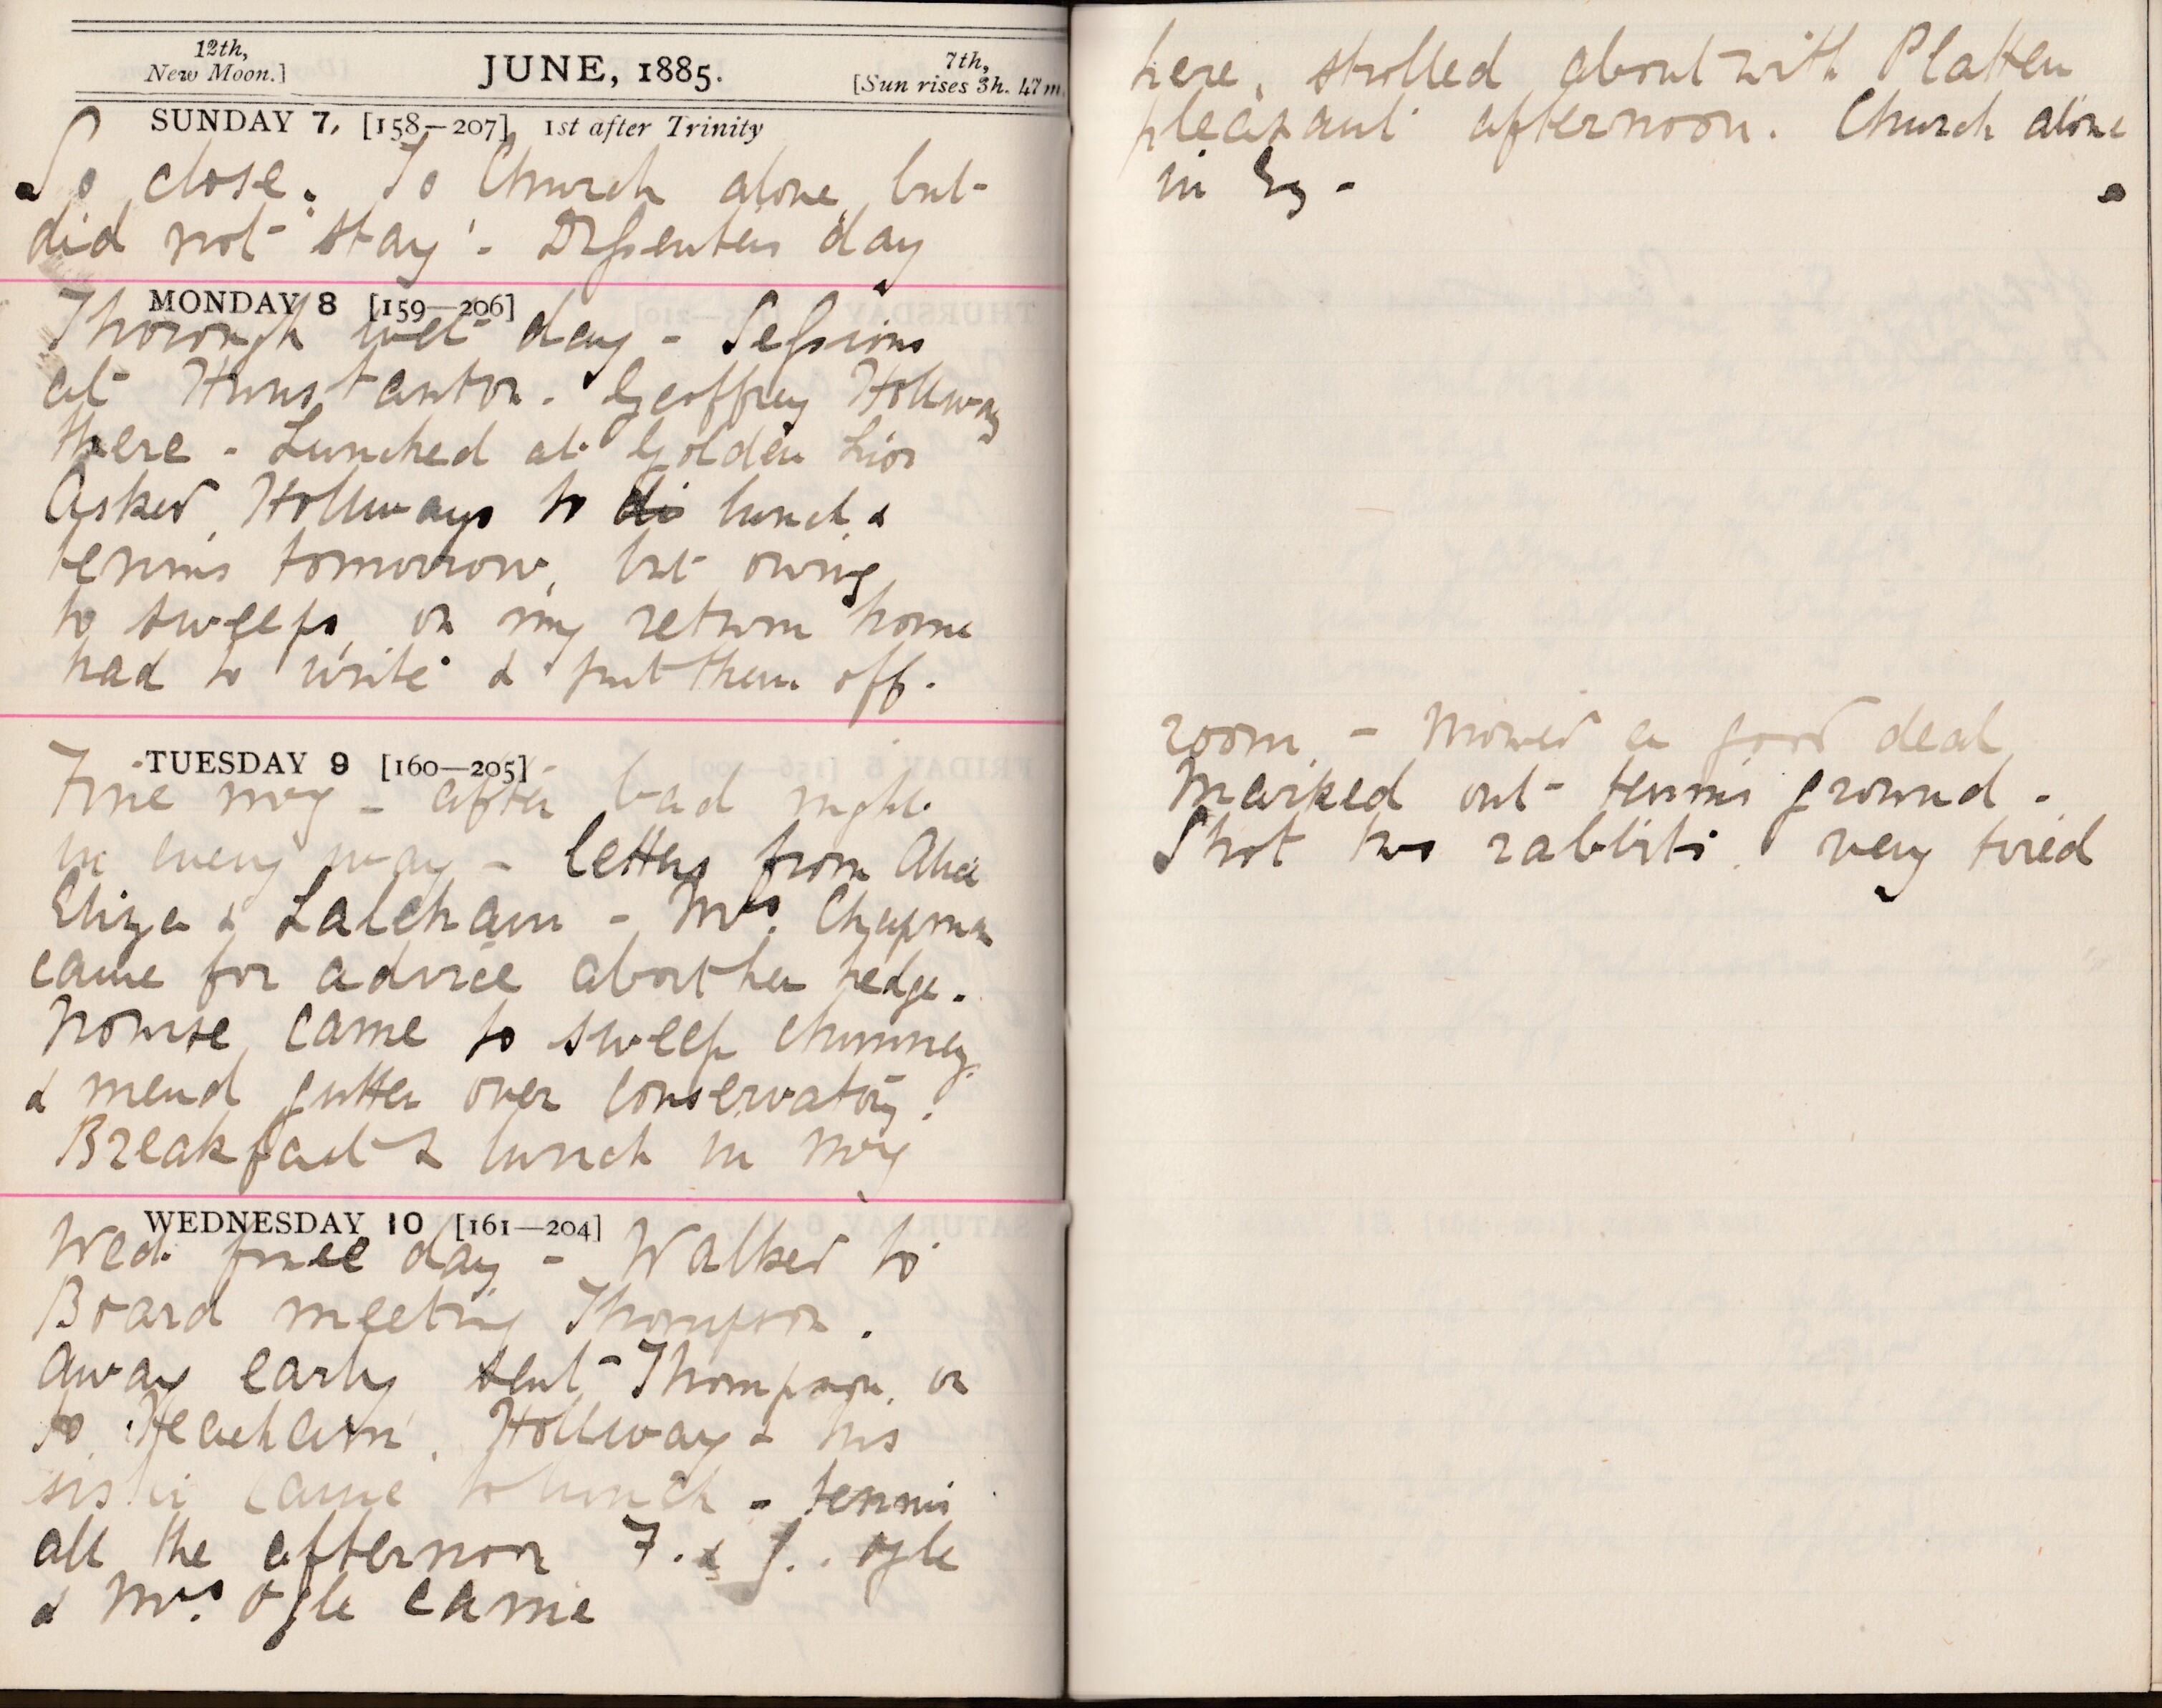 12th,
New Moon.]
JUNE, 1885.
7th,
[Sun rises 3h. 47m.
SUNDAY 7, [158—207] 1st after Trinity
So close. To Church alone but
did not stay - Dissenters day
MONDAY 8 [159—206]
Thorough wet day - Sessions
at Hunstanton. Geoffrey Hollway
there - Lunched at Golden Lion
Asked Hollways to di lunch &
tennis tomorrow, but owing
to sweeps on my return home
had to write & put them off.
TUESDAY 9 [160—205]
Fine mg - after bad night
in every way - letters from Alice
Eliza & Laleham - Mrs. Chapman
came for advice about her hedge.
came to sweep chimney
& mend gutter over conservatory.
Breakfast & lunch in mg
WEDNESDAY 10 [161—204]
Wed. fine day - Walked to
Board meeting Thompson.
away early sent Thompson on
to Heacham. Hollway & his
sister came to lunch - tennis
all the afternoon F. & J. Ogle
& Mrs. Ogle came
here, strolled about with Platten
pleasant afternoon. Church alone
in Eg -
room - Mowed a good deal
Marked out tennis ground -
Shot two rabbits. very tired